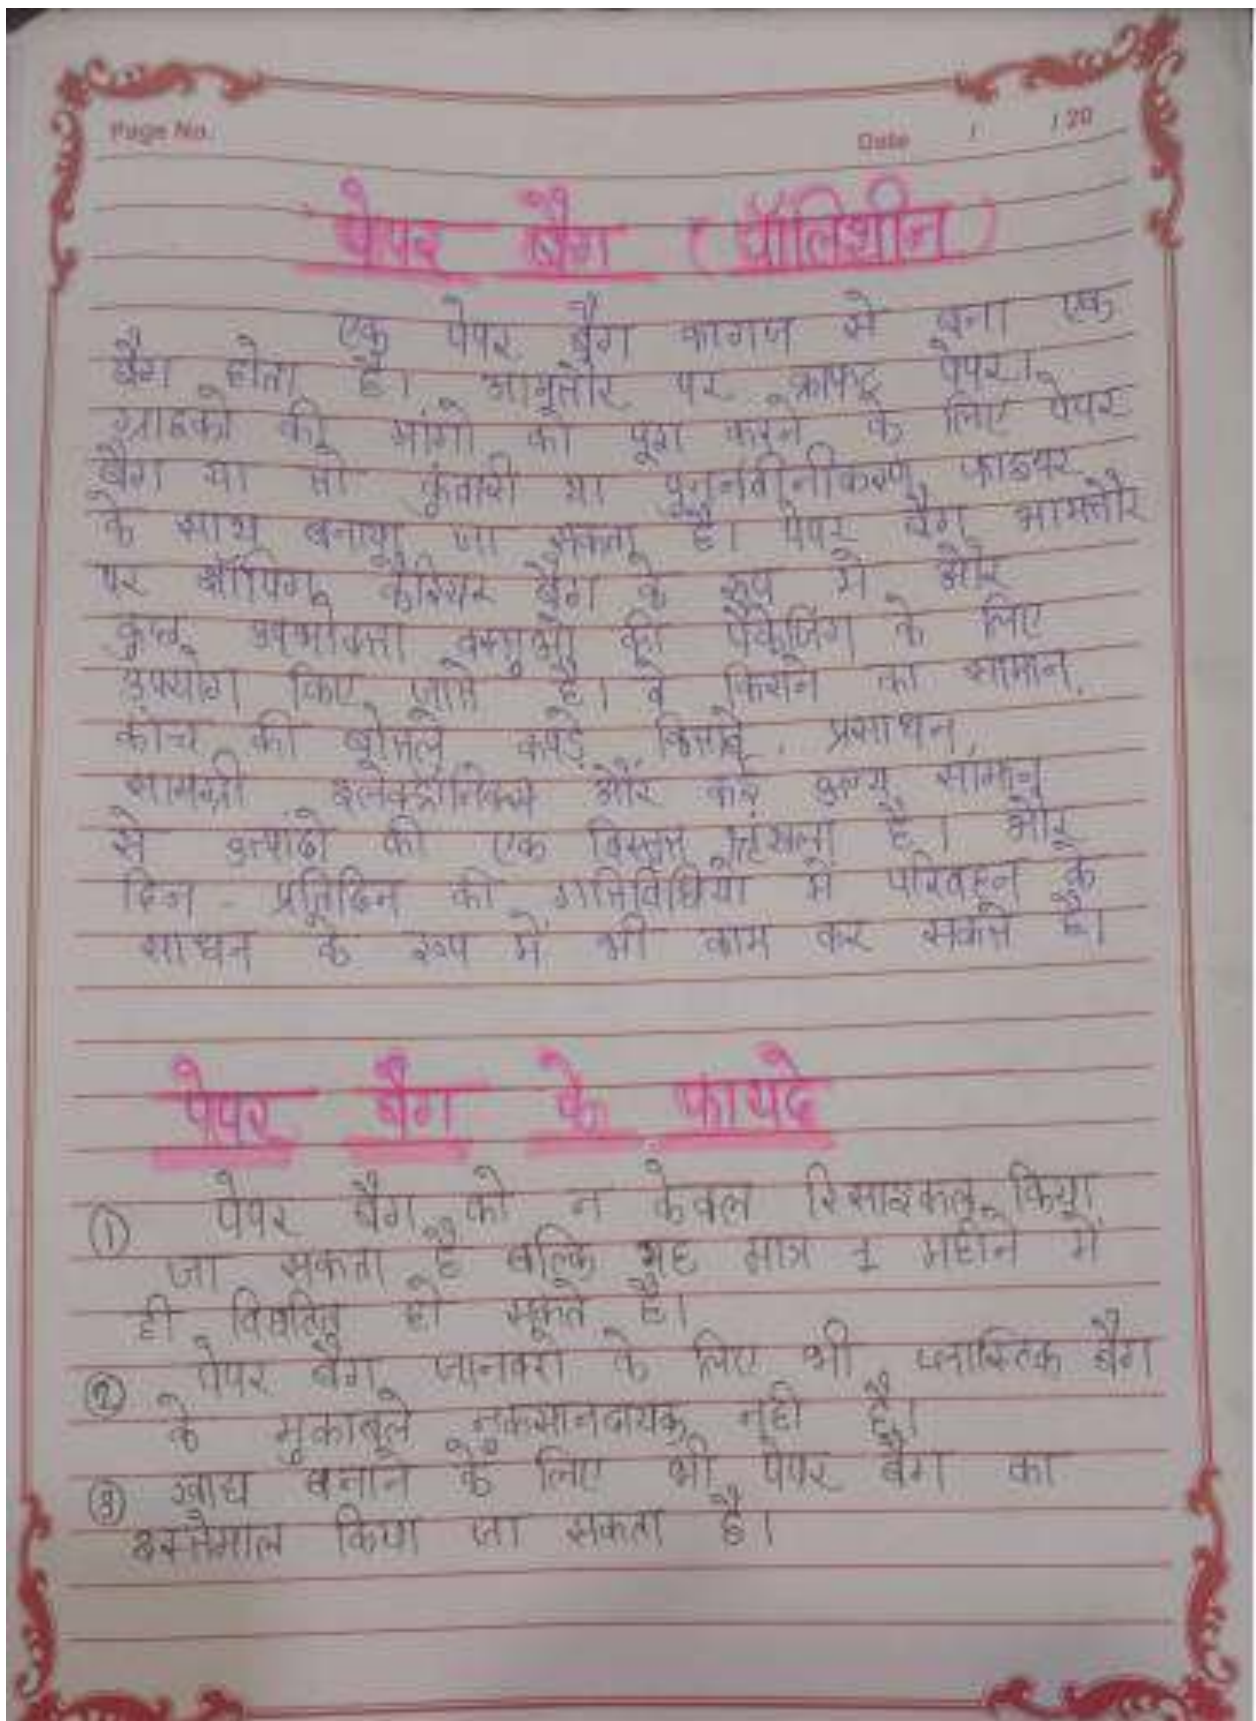 Page No.
Date / / 20
पेपर बैग (पॉलिथीन)
एक पेपर बैग कागज से बना एक
बैग होता है। आमतौर पर क्राफ्ट पेपर।
ग्राहको की मांगो को पूरा करने के लिए पेपर
बैग या तो कुंवारी या पुनर्नवीनीकरण फाइबर
के साथ बनाया जा सकता है। पेपर बैग आमतौर
पर शॉपिंग कैरियर बैग के रूप में और
कुछ उपभोक्ता वस्तुओ की पैकेजिंग के लिए
उपयोग किए जाते है। वे किराने का सामान,
कांच की बोतले कपड़े किताबे, प्रसाधन
सामग्री इलेक्ट्रॉनिक्स और कई अन्य सामान
से उत्पादो की एक विस्तृत श्रृंखला है। और
दिन - प्रतिदिन की गतिविधियो में परिवहन के
साधन के रूप में भी काम कर सकते है।
पेपर बैग के फायदे
① पेपर बैग को न केवल रिसाइकल किया
जा सकता है बल्कि यह मात्र 1 महीने में
ही विघटित हो सकते है।
② पेपर बैग जानवरो के लिए भी प्लास्टिक बैग
के मुकाबले नुकसानदायक नही है।
③ खाद्य बनाने के लिए भी पेपर बैग का
इस्तेमाल किया जा सकता है।